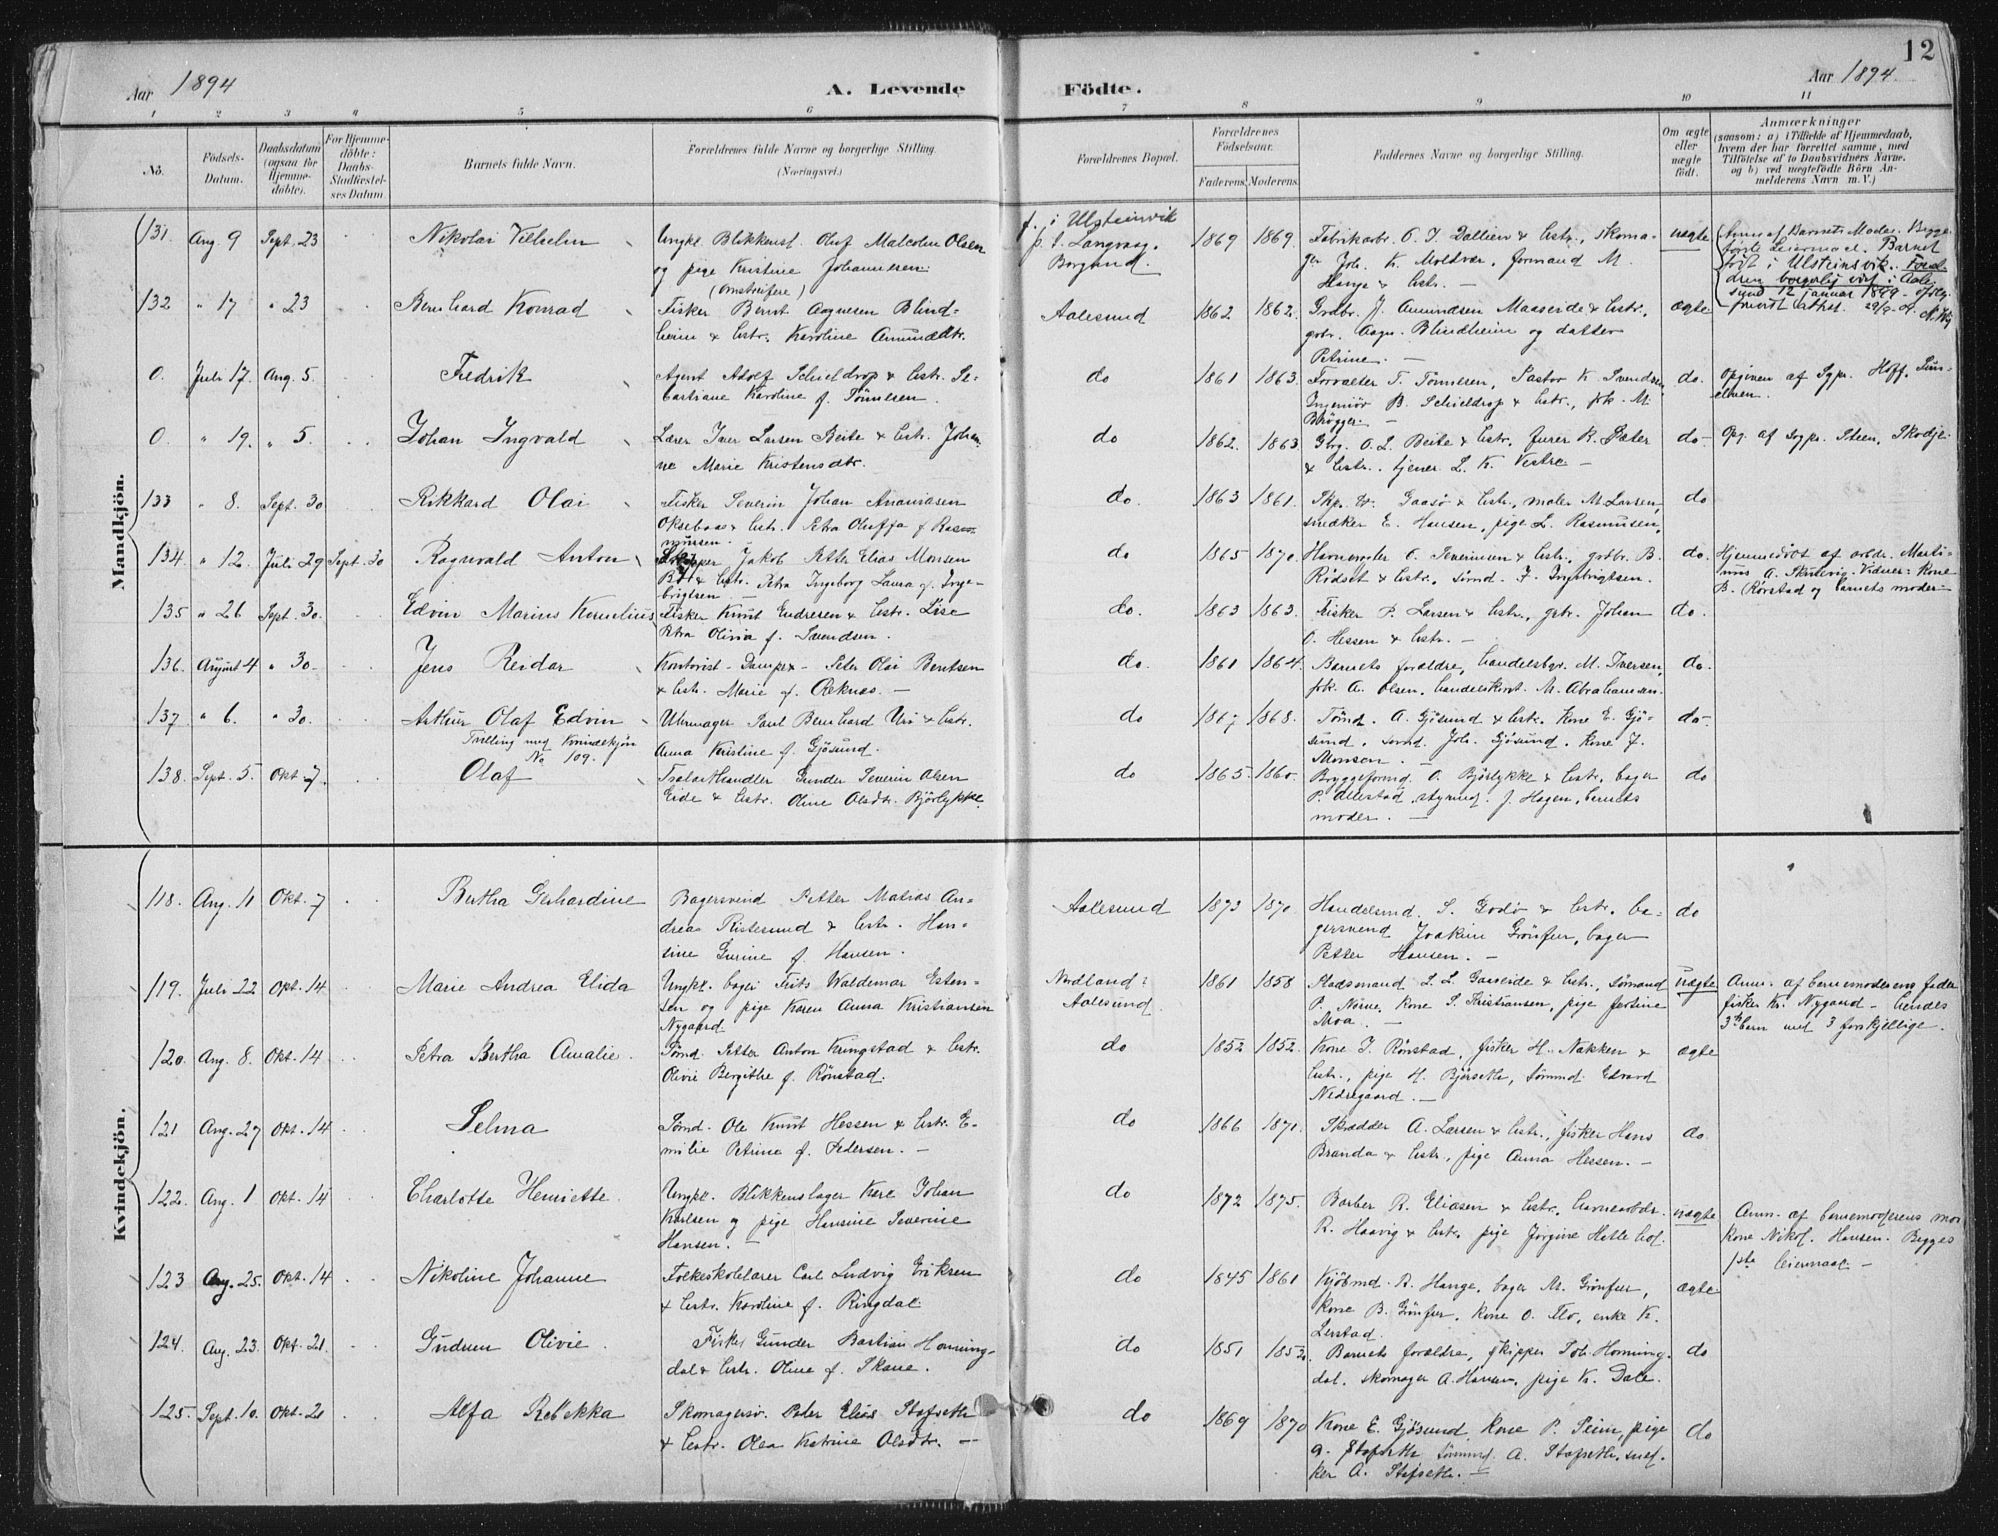 12
Aar 1894
A. Levende
Födte.
Aar 1894
1 2 3 4 5 6 7 8 9 10 11
No.
Födsels-
Datum.
Daabsdatum
(ogsaa for
Hjemme-
döbte).
For Hjemme-
döbte:
Daabs-
Stadfæstel-
ses Datum
Barnets fulde Navn.
Forældrenes fulde Navne og borgerlige Stilling.
(Næringsvei.)
Forældrenes Bopæl.
Forældrenes
Födselsaar.
Faderens. Moderens.
Faddernes Navne og borgerlige Stilling.
Om ægte
eller
uægte
födt.
Anmærkninger
(saasom: a) i Tilfælde af Hjemmedaab,
hvem der har forrettet samme, med
Tilföielse af to Daabsvidners Navne.
og b) ved uægtefödte Börn An-
melderens Navn m. V.)
Mandkjön.
131. Aug 9 Sept. 23 Nikolai Vilhelm Ungkl. Blikkensl. Oluf Malcolm Olsen
og pige Kristine Johannesen
(omstreifere)
f. i Ulsteinvik
Langvaag.
Borgund.
1869 1869. Fabrikarbr. O. J. & hstr., skoma-
ger Joh. K. Moldvær, formand M.
Hauge & hstr. —
uægte
Barnets Moder. Begge
første Leiermaal. Barnet
født i Ulsteinsvik. Foræl-
dren borgerlig viet i Aale-
sund 12 januar 1899
132 " 17 " 23 Bernhard Konrad Fisker Bernt Aagnesen Blind-
heim & hstr. Karoline Amundsdtr.
Aalesund 1862 1862. Grdbr. J. Amundsen Maaseide & hstr.,
grbr. Aagn. Blindheim og datter
Petrine. —
ægte
0. Juli 17. Aug. 5. Fredrik Agent Adolf Schieldrop & hstr. Se-
bastiane Karoline f. Tönnesen.
do 1861 1863. Forvalter T. Tönnesen, Pastor K. Svendsen,
Ingeniör B. Schieldrop & hstr., frk. M.
Brögger. —
do. Opgiven af Sgpr. Hoff, Sun-
elven.
0. " 19. " 5. Johan Ingvald Lærer Iver Larsen Beite & hstr. Johan-
ne Marie Kristensdtr.
do 1862. 1863. Gbrg. O. L. Beite & hstr., furer R. Sæter
& hstr., tjener L. K. Vestre —
do - Opg. af Sogpr. Steen, Skodje.
133 " 8. Sept. 30 Rikkard Olai Fisker Severin Johan Ananiasen
Oksebase & hstr. Petra Olufja f. Rasm-
munsen.
do 1863 1861. Skp. Gaasø & hstr., maler M. Larsen,
snedker E. Hansen, pige L. Rasmusen.
do
134. " 12. Juli 29 Sept. 30 Ragnvald Anton Skipper Jakob Petter Elias Monsen
& hstr. Petra Ingeborg Laura f. Inge-
brigtsen. —
do 1865 1870. Havnevogter O. Severinsen & hstr., grdbr. B.
Rödset & hstr., sömd. F. Ingebrigtsen.
do. Hjemmedöbt af arbdr. Marti-
nus A. Skulevig. Vidner: Kone
B. Rørstad og barnets moder —
135 " 26 Sept. 30. Edvin Marius Kornelius Fisker Knut Endresen & hstr. Lise
Petra Olivia f. Svendsen.
do. 1863 1863. Fisker P. Larsen & hstr., gbr. Johan
O. Hessen & hstr. —
do.
136. August 4 " 30. Jens Reidar Kontorist Peter Olai Bentsen
& hstr. Marie f. Reknes. —
do. 1861 1864. Barnets forældre, handelsbgr. M. Iversen,
frk. A. Olsen, handelskont. M. Abrahamsen.
do.
137 " 6. " 30. Arthur Olaf Edvin
Tvilling med Kvindekjön
No 109.
Uhrmager Paul Bernhard Uri & hstr.
Anna Kristine f. Gjösund.
do 1867 1868. Tömd. A. Gjösund & hstr. Kone E. Gjö-
sund, sömd. Joh. Gjösund, Kone J.
Monsen. —
do -
138. Sept. 5. Okt. 7. Olaf Gunder Severin Olsen
Eide & hstr. Oline Olsdtr. Björlykke.
do 1865. 1860. Bryggeformd. O. Björlykke & hstr., bager
P. Ullestad, styrmd. J. Hagen, barnets
moder. —
do
Kvindekjön.
118. Aug. 11 Okt. 7 Bertha Gerhardine Bagersvend Petter Matias An-
dreas Ristesund & hstr. Han-
sine Gurine f. Hansen.
Aalesund 1873 1870. Handelsmd. S. Godö & hstr., ba-
gersvend Joakim Grönfur, bager
Petter Hansen. —
do
119. Juli 22 Okt. 14 Marie Andrea Elida Ungkl. bager Frits Waldemar Esten-
sen og pige Karen Anna Kristiansen
Nygaard
Nordland:
Aalesund.
1861 1858 Pladsmand L. L. Gaaseide & hstr., sömand
P. Nörve, kone S. Kristiansen, pige Jensine
Moa. —
uægte Anm. af barnemoderens fader
fisker Kr. Nygaard - hendes
3die barn med 3 forskjellige.
120. Aug. 8. Okt. 14 Petra Bertha Amalie. Sömd. Petter Anton Kringstad & hstr.
Olivie Bergithe f. Rönstad.
do 1852 1852. Kone J. Rönstad, fisker H. Nakken &
hstr., pige H. Björseth, Sömmd. Edvard
Nedregaard. —
ægte
121 Aug. 27 Okt. 14 Selma Sömd. Ole Knut Hessen & hstr. E-
milie Petrine f. Pedersen. —
do 1866 1871. Skrædder A. Larsen & hstr., fisker Hans
Brandal & hstr., pige Anna Hessen. —
do.
122. Aug. 1 Okt. 14 Charlotte Henriette. Ungkl. Blikkenslager Karl Johan
Karlsen og pige Hansine Severine
Hansen. —
do 1872 1875. Barber R. Eliasen & hstr., havnearbdr.
R. Haavig & hstr., pige Jörgine Hatlehol.
uægte Anm. af barnemoderens mor
Kone Nikol. Hansen. Begges
1ste leiermaal —
123 Aug. 25. Okt. 14 Nikoline Johanne Folkeskolelærer Carl Ludvig Eriksen
& hstr. Karoline f. Ringdal
do 1845 1861 Kjöbmd. R. Hauge, bager M. Grönfur,
Kone B. Grönfur, kone O. Flo, enke K.
Lerstad.
ægte
124. Aug. 23. Okt. 21 Gudrun Olivie. Fisker Gunder Bastian Horning-
dal & hstr. Oline f. Skare.
do 1851 1852. Barnets forældre, skipper Joh. Horning-
dal, skomager A. Hansen, pige K. Dale.
do
125. Sept. 10. Okt. 21 Alfa Rebekka Skomagersv. Peder Elias Stafseth
& hstr. Olea Katrine Olsdtr. —
do 1869 1870 Kone E. Gjösund, Kone P. Seim, pige
G. Stafseth, Sömmd. A. Stafseth, sned-
ker A. Stafseth. —
do